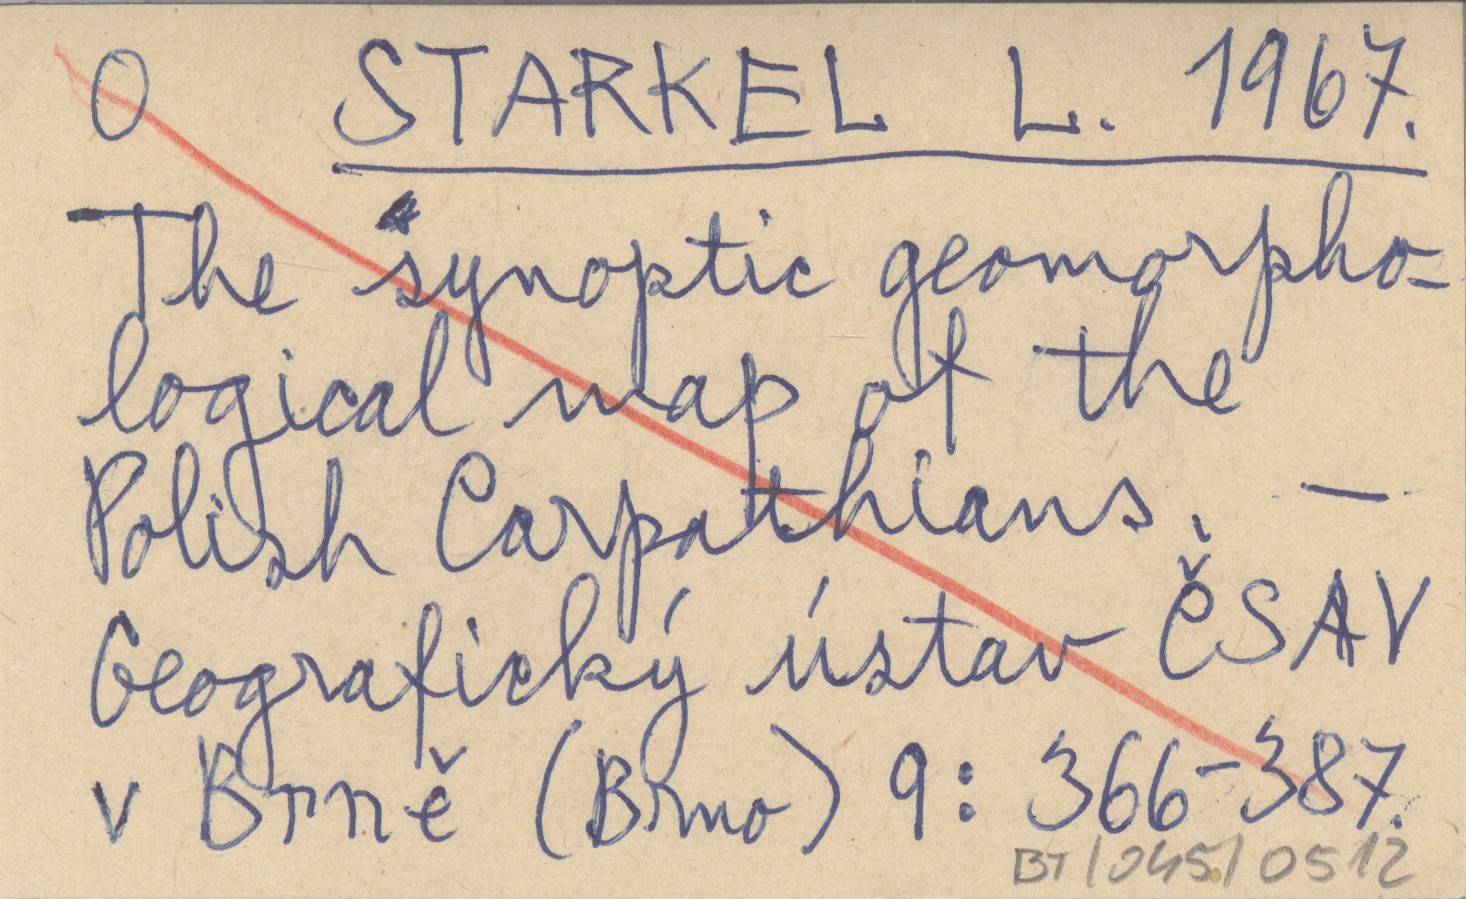 O STARKEL L. 1967.
The synoptic geomorpho-
logical map of the
Polish Carpathians. —
Geografický ústav ČSAV
v Brně (Brno) 9: 366-387.
BT/045/0512